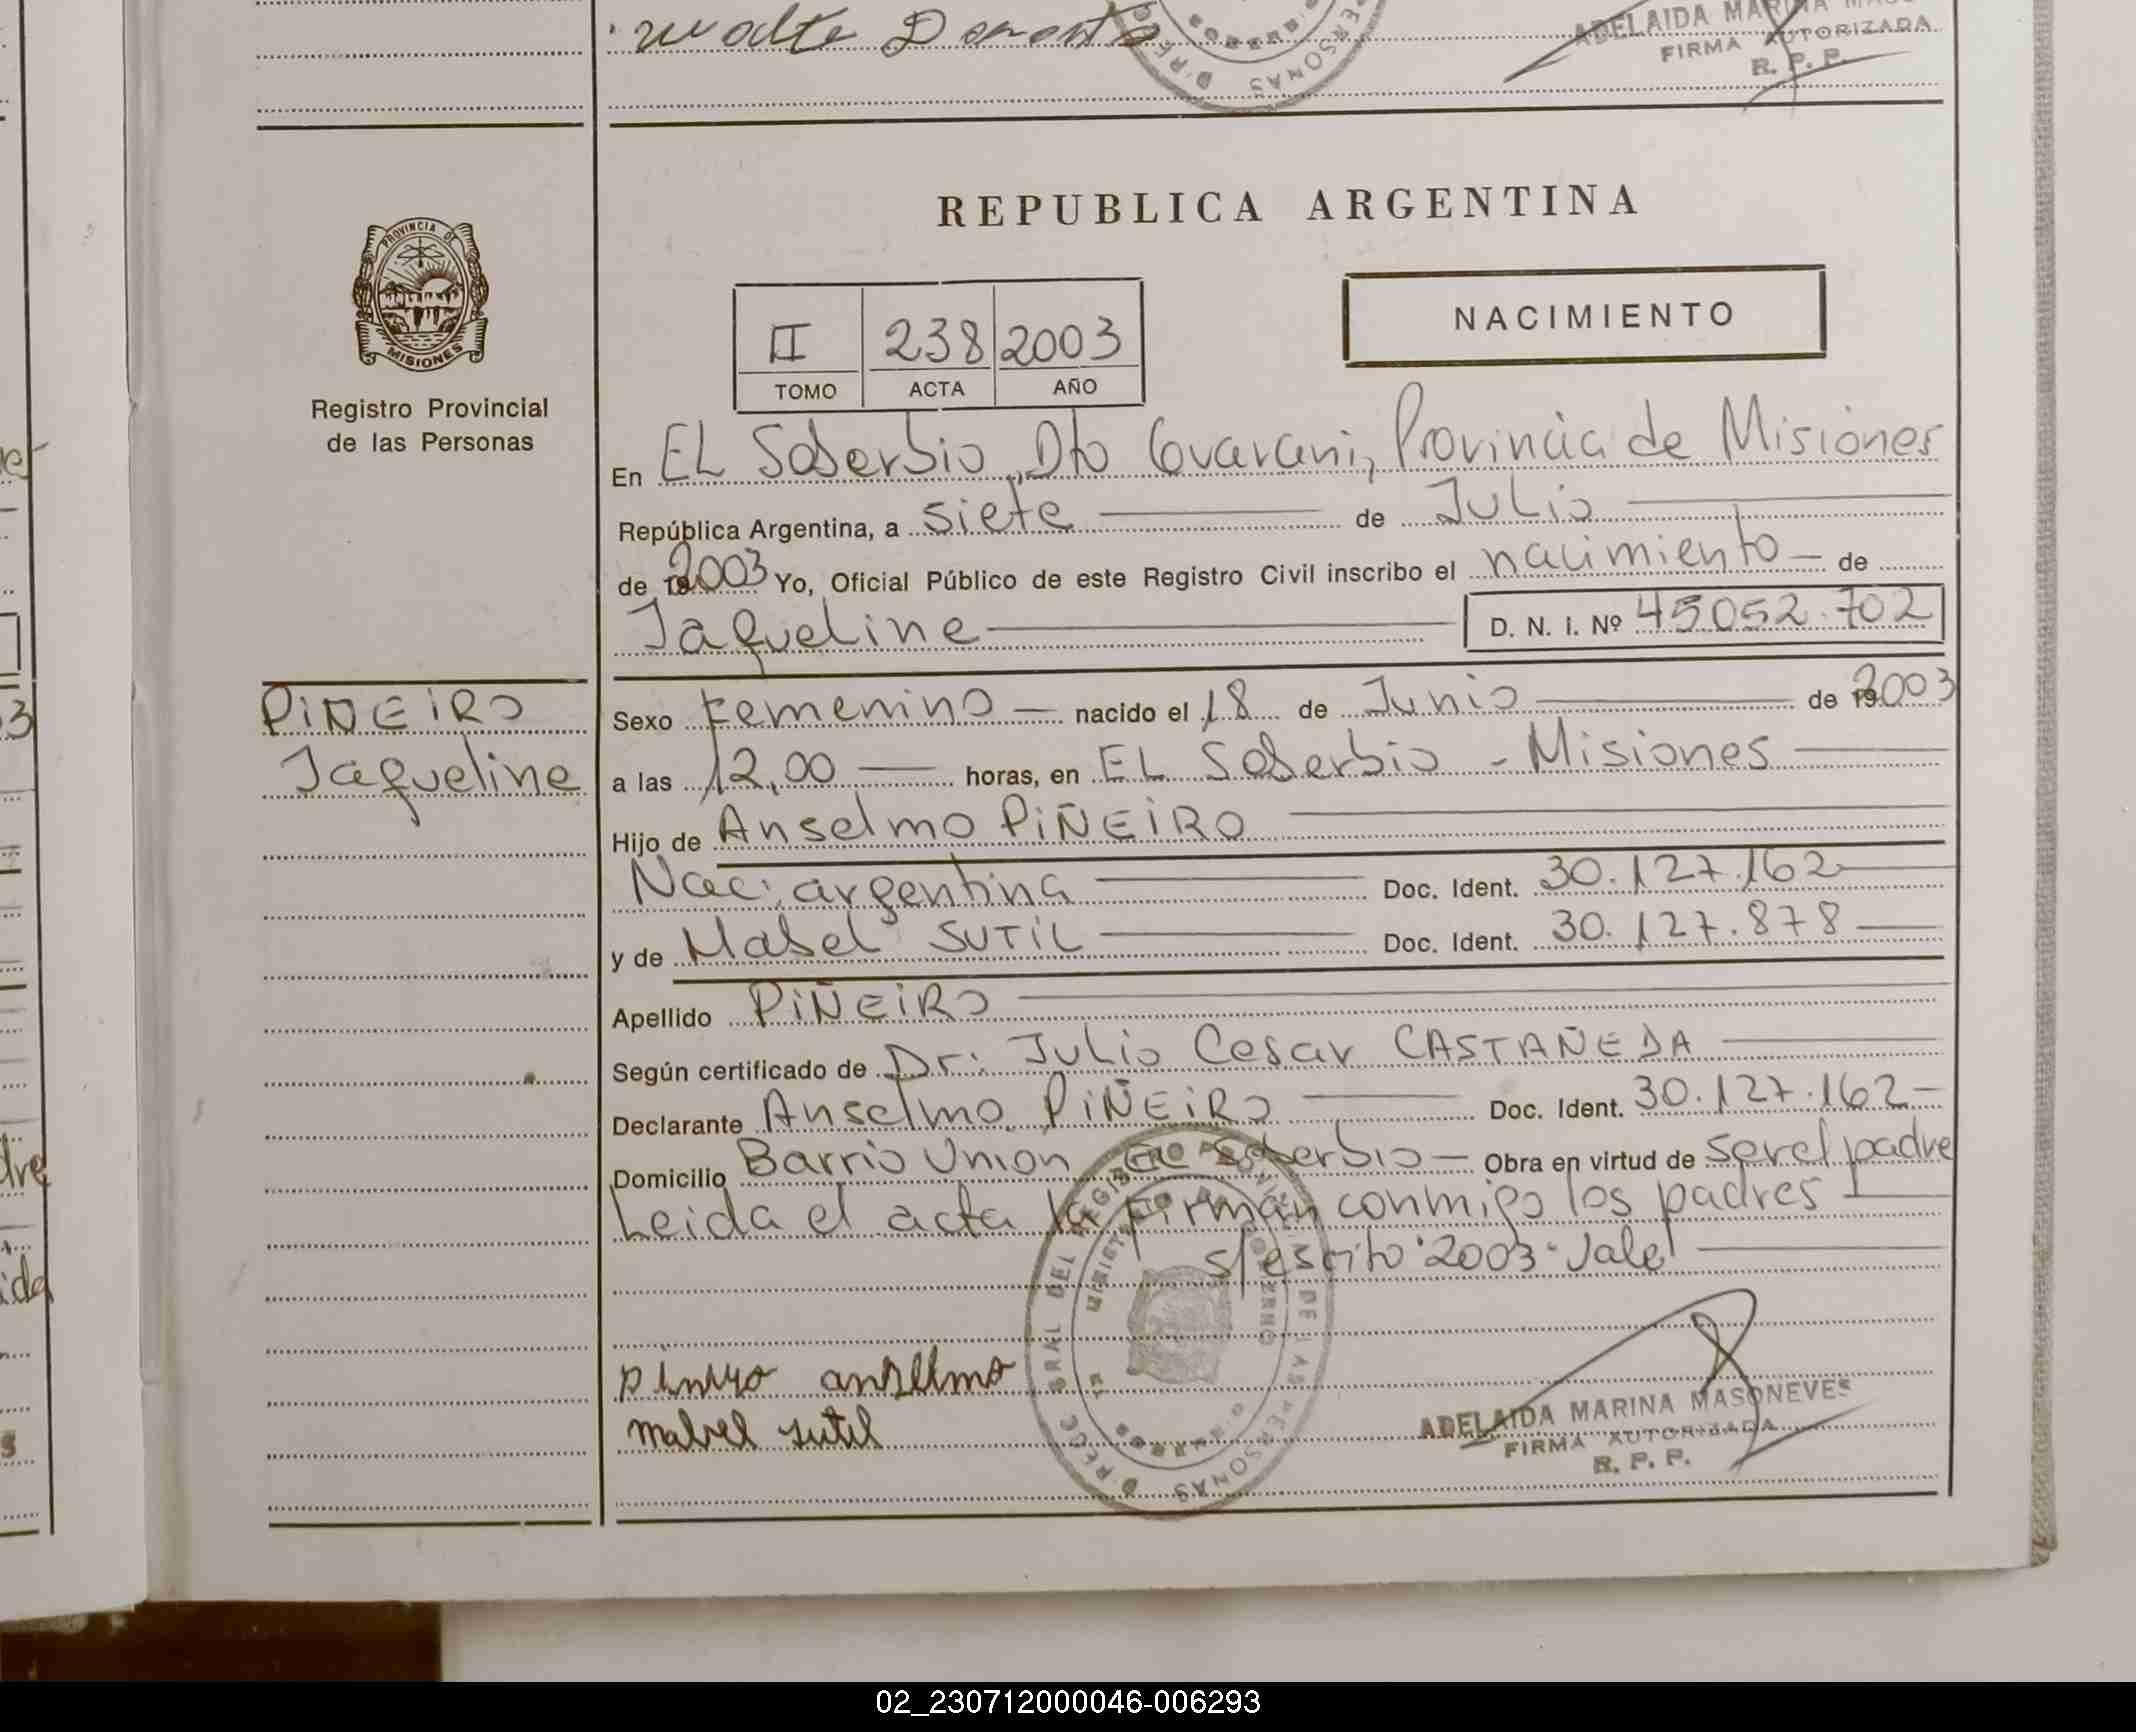 ADELAIDA MARINA
FIRMA AUTORIZADA
R. P. P.
PROVINCIA DE
MISIONES
Registro Provincial
de las Personas
REPUBLICA ARGENTINA
II 238 2003
TOMO ACTA AÑO
NACIMIENTO
En EL Soberbio, Dto Guarani, Provincia de Misiones
República Argentina, a siete de Julio
de 2003 Yo, Oficial Público de este Registro Civil inscribo el nacimiento de
Jaqueline D. N. I. Nº 45052.702
PiÑEiRO
Jaqueline
Sexo Femenino nacido el 18 de Junio de 2003
a las 12,00 horas, en EL Soberbio - Misiones
Hijo de Anselmo PiÑEiRO
Nac: argentina Doc. Ident. 30.127.162
y de Mabel SUTiL Doc. Ident. 30.127.878
Apellido PiÑEiRO
Según certificado de Dr: Julio Cesar CASTAÑEDA
Declarante Anselmo PiÑEiRO Doc. Ident. 30.127.162
Domicilio Barrio Union El Soberbio Obra en virtud de ser el padre
Leida el acta la Firman conmigo los padres
s/escrito "2003" Vale
anselmo
mabel sutil
ADELAIDA MARINA MASONEVES
FIRMA AUTORIZADA
R. P. P.
02_230712000046-006293